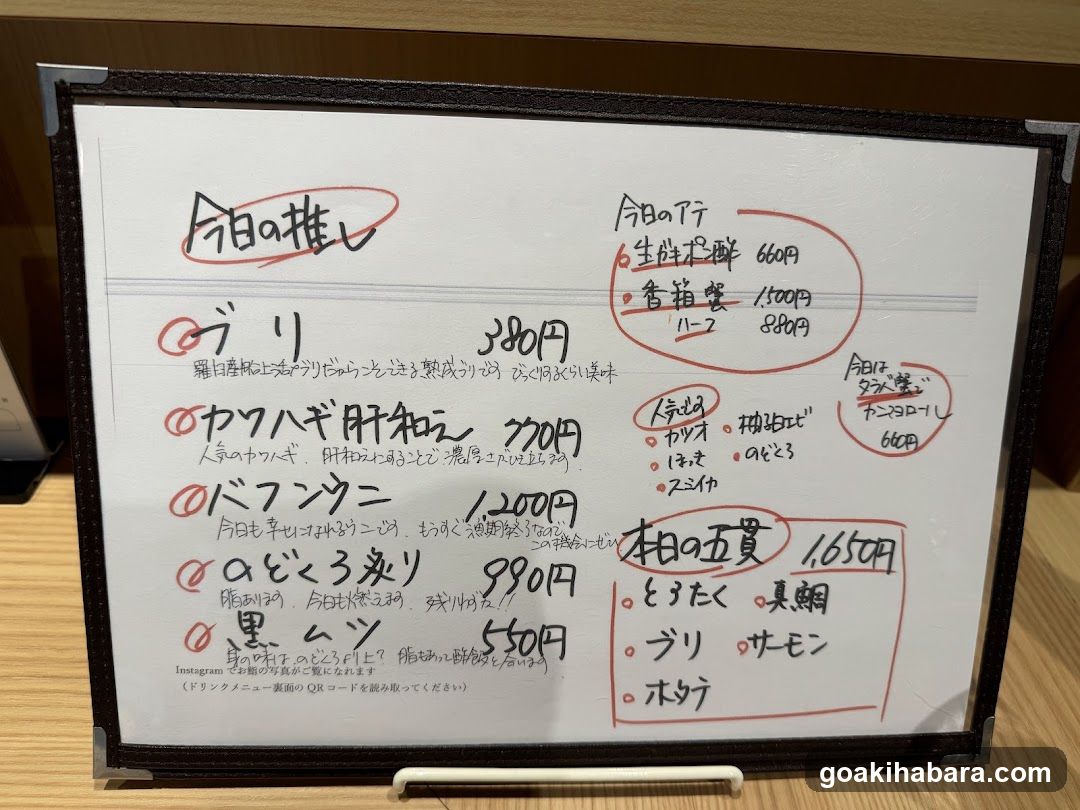 今日の推し
ブリ 380円
羅臼産極上活〆ブリだからこそできる熟成ブリです びっくりするくらい美味
カワハギ肝和え 770円
人気のカワハギ、肝和えにすることで濃厚さがひき立ちます。
バフンウニ 1,200円
今日も幸せになれるうにです。もうすぐ漁期終了なので、
この機会にぜひ
のどくろ炙り 990円
脂あります。今日も燃えます。残りわずか!!
黒ムツ 550円
身の味は、のどくろより上? 脂もあって酢飯と合います
Instagram でお鮨の写真がご覧になれます
(ドリンクメニュー裏面の QR コードを読み取ってください)
今日のアテ
生ガキポン酢 660円
香箱蟹 1,500円
ハーフ 880円
今日は
タラバ蟹で
カニマヨロール
660円
人気です
カツオ
ほっき
スミイカ
エビ
のどくろ
本日の五貫 1,650円
とろたく 真鯛
ブリ サーモン
ホタテ
goakihabara.com